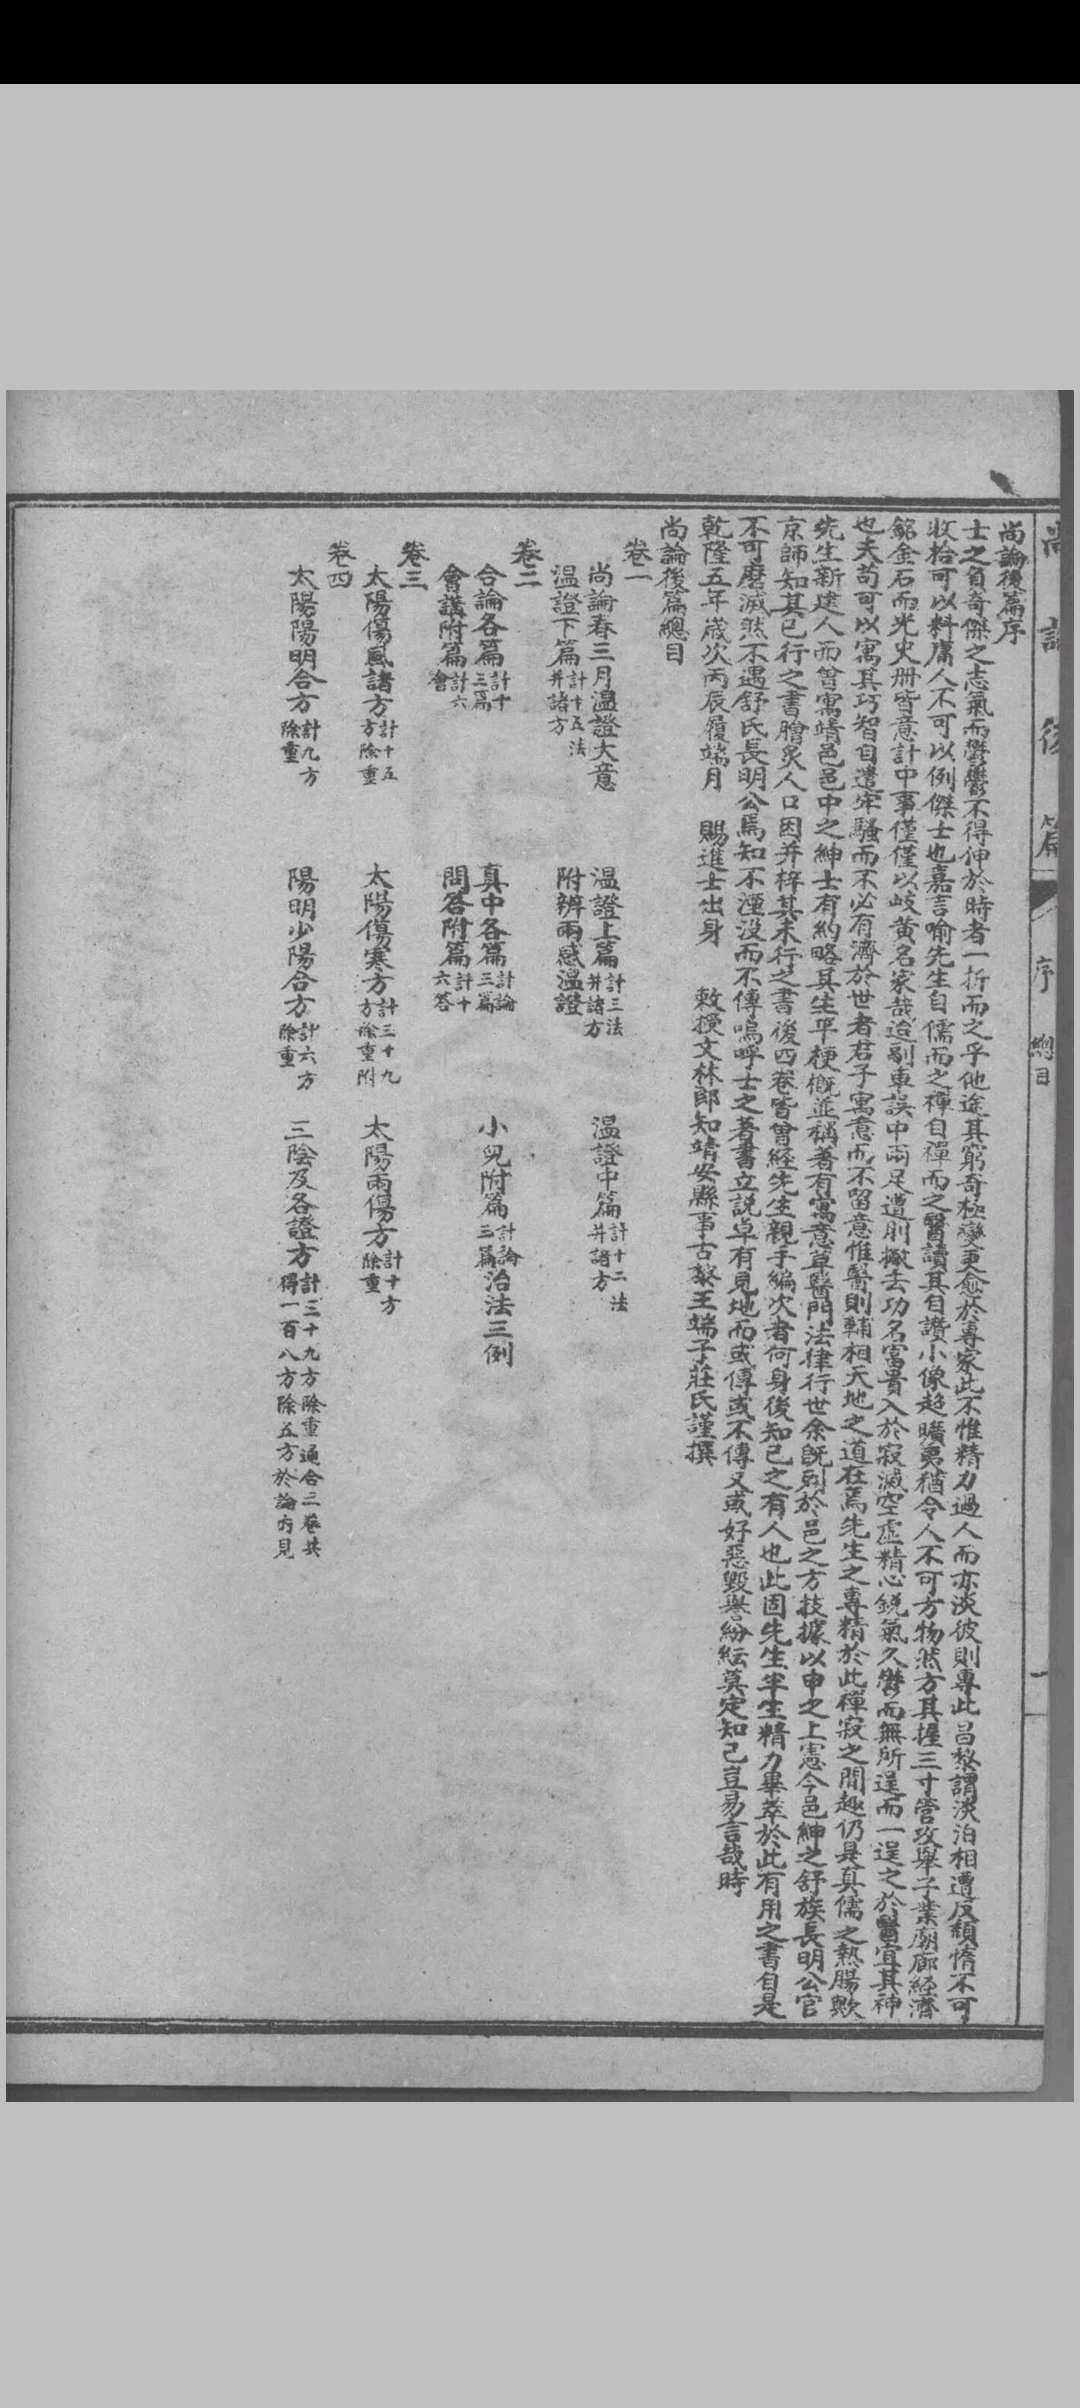 尚論後篇
序
總目
一
尚論後篇序
士之負奇傑之志氣而鬱鬱不得伸於時者一折而之乎他途其窮奇極變更愈於專家此不惟精力過人而亦淡彼則專此昌黎謂淡泊相遭反頹惰不可
收拾可以料庸人不可以例傑士也嘉言喻先生自儒而之禪自禪而之醫讀其自讚小像超曠夷猶令人不可方物然方其握三寸管攻舉子業廟廊經濟
銘金石而光史册皆意計中事僅僅以岐黃名家哉迨副車誤中兩足遭刖撇去功名富貴入於寂滅空虛精心銳氣久鬱而無所逞而一逞之於醫宜其神
也夫苟可以寓其巧智自遣牢騷而不必有濟於世者君子寓意而不留意惟醫則輔相天地之道在焉先生之專精於此禪寂之間趣仍是真儒之熱腸歟
先生新建人而曾寓靖邑邑中之紳士有約略其生平梗概並稱著有寓意草醫門法律行世余既列於邑之方技據以申之上憲今邑紳之舒族長明公官
京師知其已行之書膾炙人口因并梓其未行之書後四卷皆曾經先生親手編次者何身後知己之有人也此固先生半生精力畢萃於此有用之書自是
不可磨滅然不遇舒氏長明公焉知不湮没而不傳嗚呼士之著書立説卓有見地而或傳或不傳又或好惡毀譽紛紜莫定知己豈易言哉時
乾隆五年歲次丙辰履端月 賜進士出身 敕授文林郎知靖安縣事古黎王端子莊氏謹撰
尚論後篇總目
卷一
尚論春三月温證大意 温證上篇計三法并諸方 温證中篇計十二法并諸方
温證下篇計十五法并諸方 附辨兩感温證
卷二
合論各篇計十三篇 真中各篇計論三篇 小兒附篇計論三篇治法三例
會講附篇計六會 問答附篇計十六答
卷三
太陽傷風諸方計十五方除重 太陽傷寒方計三十九方除重附 太陽兩傷方計十方除重
卷四
太陽陽明合方計九方除重 陽明少陽合方計六方除重 三陰及各證方計三十九方除重通合二卷共得一百八方除五方於論内見